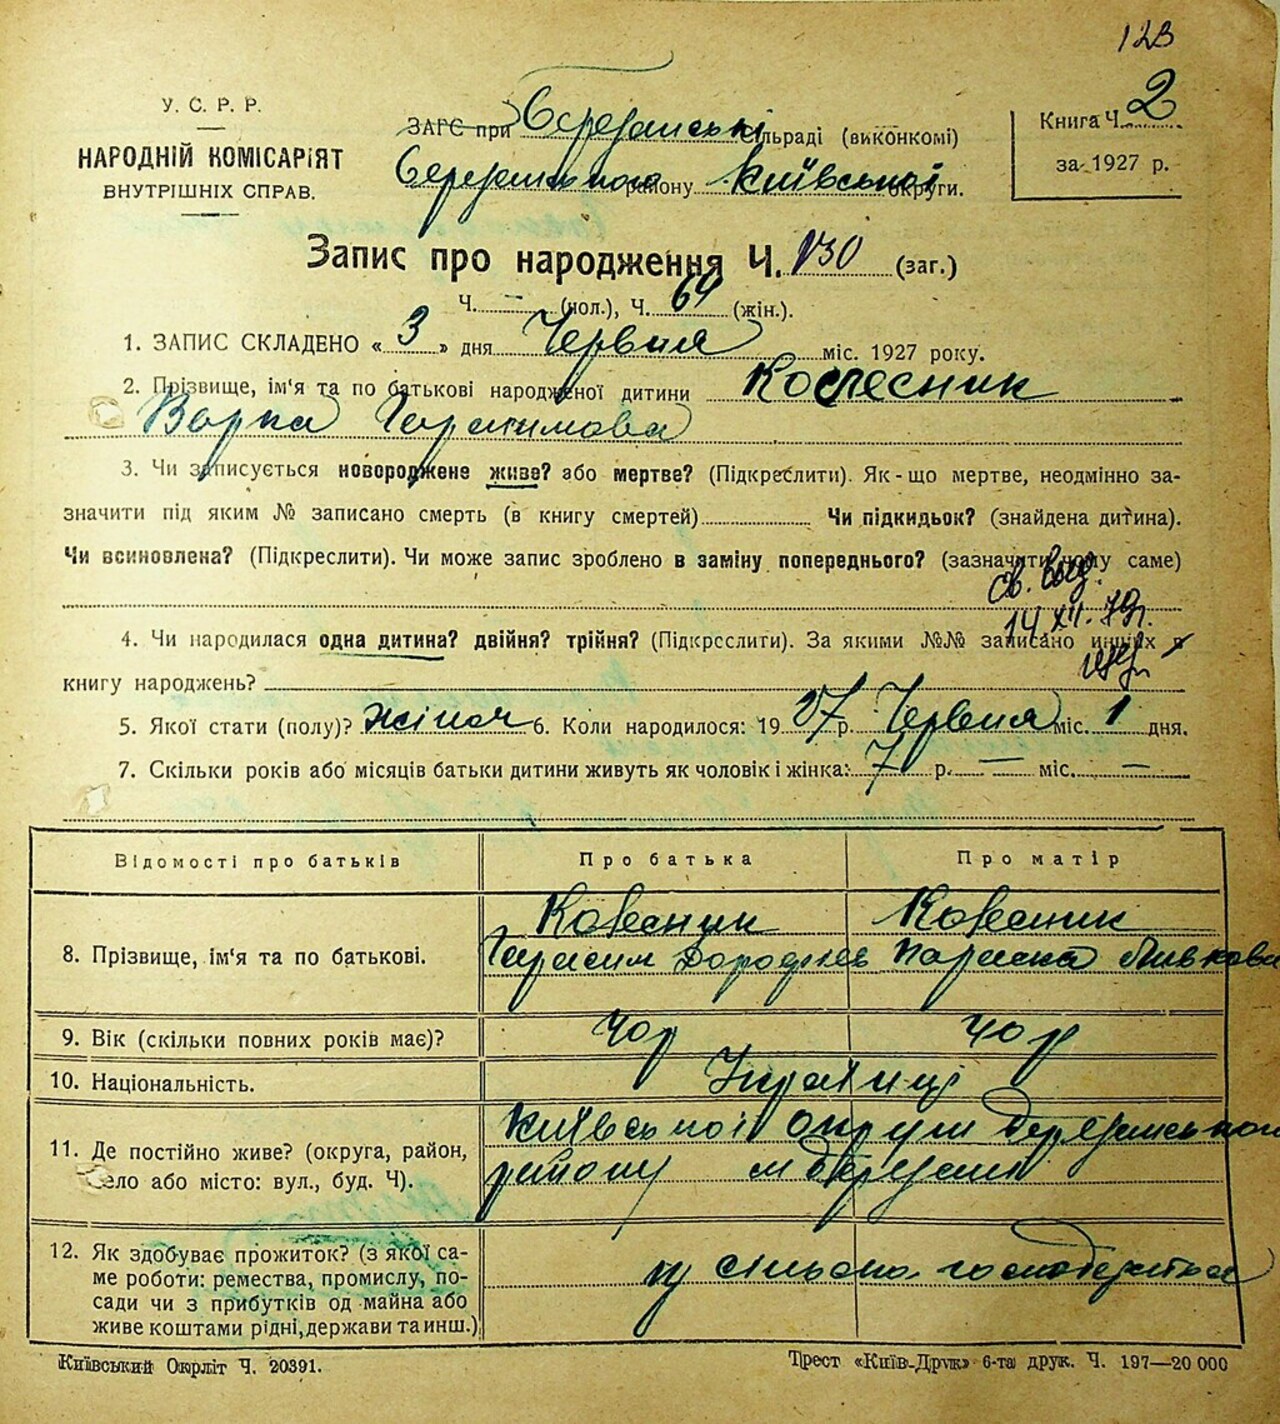 123
У. С. Р. Р.
НАРОДНІЙ КОМІСАРІЯТ
ВНУТРІШНІХ СПРАВ.
ЗАГС при Березанській сільраді (виконкомі)
Березанського району Київської округи.
Книга Ч. 2
за 1927 р.
Запис про народження Ч. 130 (заг.)
Ч. — (чол.), Ч. 64 (жін.).
1. ЗАПИС СКЛАДЕНО « 3 » дня Червня міс. 1927 року.
2. Прізвище, ім'я та по батькові народженої дитини Колесник
Варка Гарасимова
3. Чи записується новороджене живе? або мертве? (Підкреслити). Як-що мертве, неодмінно за-
значити під яким № записано смерть (в книгу смертей) Чи підкидьок? (знайдена дитина).
Чи всиновлена? (Підкреслити). Чи може запис зроблено в заміну попереднього? (зазначити чому саме)
св. выд.
14 XII. 79г.
4. Чи народилася одна дитина? двійня? трійня? (Підкреслити). За якими №№ записано инших в
книгу народжень?
5. Якої стати (полу)? жіноч 6. Коли народилося: 1927 р. Червня міс. 1 дня.
7. Скільки років або місяців батьки дитини живуть як чоловік і жінка: 7 р. — міс. —
Відомості про батьків Про батька Про матір
8. Прізвище, ім'я та по батькові. Колесник Колесник
Гарасим Дорофіїв Параска
9. Вік (скільки повних років має)? 40р 40р
10. Національність. Українці
11. Де постійно живе? (округа, район, село або місто: вул., буд. Ч). Київської округи Березанського
району м Березань
12. Як здобуває прожиток? (з якої са-
ме роботи: ремества, промислу, по-
сади чи з прибутків од майна або
живе коштами рідні, держави та инш.) сільсько господарства
Київський Окрліт Ч. 20391.
Трест «Київ-Друк» 6-та друк. Ч. 197—20 000